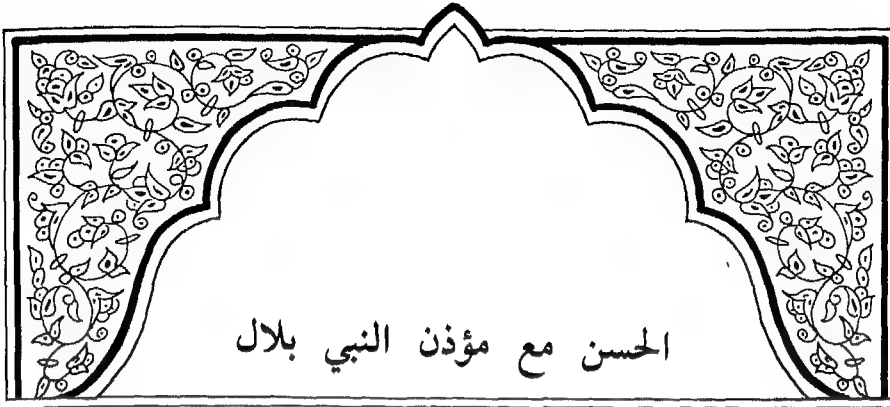 الحسن مع مؤذن النبي بلال